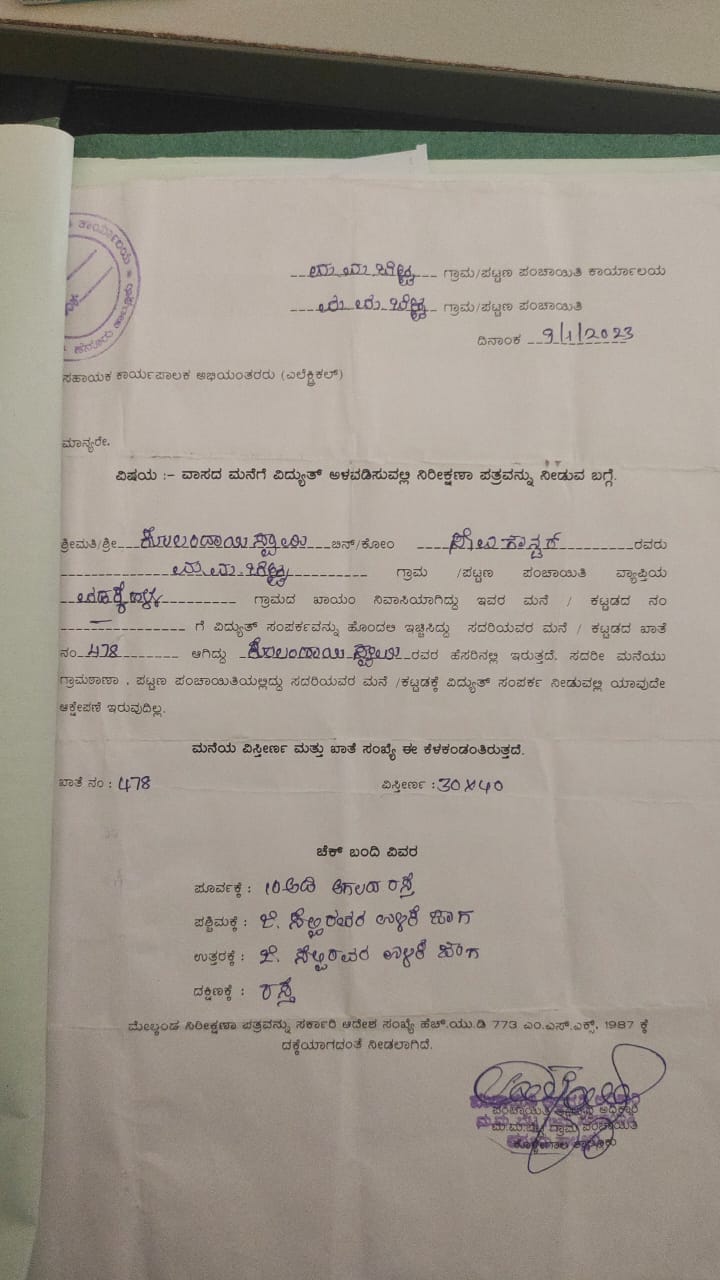 ಕಾರ್ಯಾಲಯ
ಮ.ಮ.ಬೆಟ್ಟ ಗ್ರಾಮ/ಪಟ್ಟಣ ಪಂಚಾಯಿತಿ ಕಾರ್ಯಾಲಯ
ಮ.ಮ.ಬೆಟ್ಟ ಗ್ರಾಮ/ಪಟ್ಟಣ ಪಂಚಾಯಿತಿ
ದಿನಾಂಕ 9/1/2023
ಸಹಾಯಕ ಕಾರ್ಯಪಾಲಕ ಅಭಿಯಂತರರು (ಎಲೆಕ್ಟ್ರಿಕಲ್)
ಮಾನ್ಯರೇ.
ವಿಷಯ :- ವಾಸದ ಮನೆಗೆ ವಿದ್ಯುತ್ ಅಳವಡಿಸುವಲ್ಲಿ ನಿರೀಕ್ಷಣಾ ಪತ್ರವನ್ನು ನೀಡುವ ಬಗ್ಗೆ.
ಶ್ರೀಮತಿ/ಶ್ರೀ ಕೊಲಂದಾಯಿಸ್ವಾಮಿ ಬಿನ್/ಕೋಂ ರವರು
ಮ.ಮ.ಬೆಟ್ಟ ಗ್ರಾಮ /ಪಟ್ಟಣ ಪಂಚಾಯಿತಿ ವ್ಯಾಪ್ತಿಯ
ಗ್ರಾಮದ ಖಾಯಂ ನಿವಾಸಿಯಾಗಿದ್ದು ಇವರ ಮನೆ / ಕಟ್ಟಡದ ನಂ
— ಗೆ ವಿದ್ಯುತ್ ಸಂಪರ್ಕವನ್ನು ಹೊಂದಲು ಇಚ್ಚಿಸಿದ್ದು ಸದರಿಯವರ ಮನೆ / ಕಟ್ಟಡದ ಖಾತೆ
ನಂ 478 ಆಗಿದ್ದು ಕೊಲಂದಾಯಿಸ್ವಾಮಿ ರವರ ಹೆಸರಿನಲ್ಲಿ ಇರುತ್ತದೆ. ಸದರೀ ಮನೆಯು
ಗ್ರಾಮಠಾಣಾ . ಪಟ್ಟಣ ಪಂಚಾಯಿತಿಯಲ್ಲಿದ್ದು ಸದರಿಯವರ ಮನೆ /ಕಟ್ಟಡಕ್ಕೆ ವಿದ್ಯುತ್ ಸಂಪರ್ಕ ನೀಡುವಲ್ಲಿ ಯಾವುದೇ
ಆಕ್ಷೇಪಣೆ ಇರುವುದಿಲ್ಲ.
ಮನೆಯ ವಿಸ್ತೀರ್ಣ ಮತ್ತು ಖಾತೆ ಸಂಖ್ಯೆ ಈ ಕೆಳಕಂಡಂತಿರುತ್ತದೆ.
ಖಾತೆ ನಂ : 478 ವಿಸ್ತೀರ್ಣ : 30×40
ಚೆಕ್ ಬಂದಿ ವಿವರ
ಪೂರ್ವಕ್ಕೆ : 10 ಅಡಿ ಅಗಲದ ರಸ್ತೆ
ಪಶ್ಚಿಮಕ್ಕೆ : ಜೆ. ಸೆಲ್ವರವರ ಉಳಿಕೆ ಜಾಗ
ಉತ್ತರಕ್ಕೆ : ಜೆ. ಸೆಲ್ವರವರ ಉಳಿಕೆ ಜಾಗ
ದಕ್ಷಿಣಕ್ಕೆ : ರಸ್ತೆ
ಮೇಲ್ಕಂಡ ನಿರೀಕ್ಷಣಾ ಪತ್ರವನ್ನು ಸರ್ಕಾರಿ ಆದೇಶ ಸಂಖ್ಯೆ ಹೆಚ್.ಯು.ಡಿ 773 ಎಂ.ಎಸ್.ಎಕ್ಸ್, 1987 ಕ್ಕೆ
ದಕ್ಕೆಯಾಗದಂತೆ ನೀಡಲಾಗಿದೆ.
ಪಂಚಾಯಿತಿ ಅಭಿವೃದ್ಧಿ ಅಧಿಕಾರಿ
ಮ.ಮ.ಬೆಟ್ಟ ಗ್ರಾಮ ಪಂಚಾಯಿತಿ